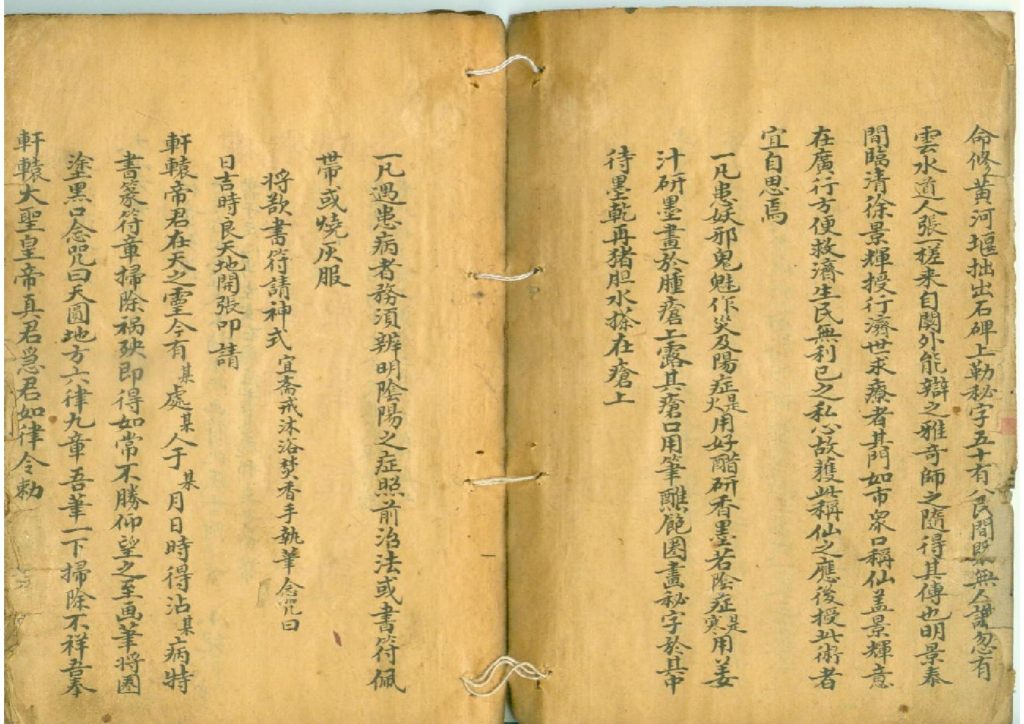 命修黄河堰拙出石碑上勒秘字五十有八民間畧無人識忽有
雲水道人張一槎来自関外能辯之雅奇師之隨得其傳也明景泰
間臨清徐景輝授行濟世求療者其門如市衆口稱仙盖景輝意
在廣行方便救濟生民無利己之私心故獲此稱仙之應後授此術者
宜自思焉
一凡患妖邪鬼魅作災及陽症是火用好醋研香墨若陰症是寒用姜
汁研墨畫於腫瘡上露其瘡口用筆蘸圏畫秘字於其中
待墨乾再猪胆水搽在瘡上
一凡遇患病者務須辨明陰陽之症照前治法或書符佩
帶或燒灰服
将欲書符請神式 宜齋戒沐浴焚香手執筆念咒曰
日吉時良天地開張叩請
軒轅帝君在天之靈今有某處某人于某月日時得沾某病特
書篆符章掃除禍殃即得如常不勝仰望之至画筆將圏
塗黒口念咒曰天圓地方六律九章吾筆一下掃除不祥吾奉
軒轅大聖皇帝真君急君如律令勅